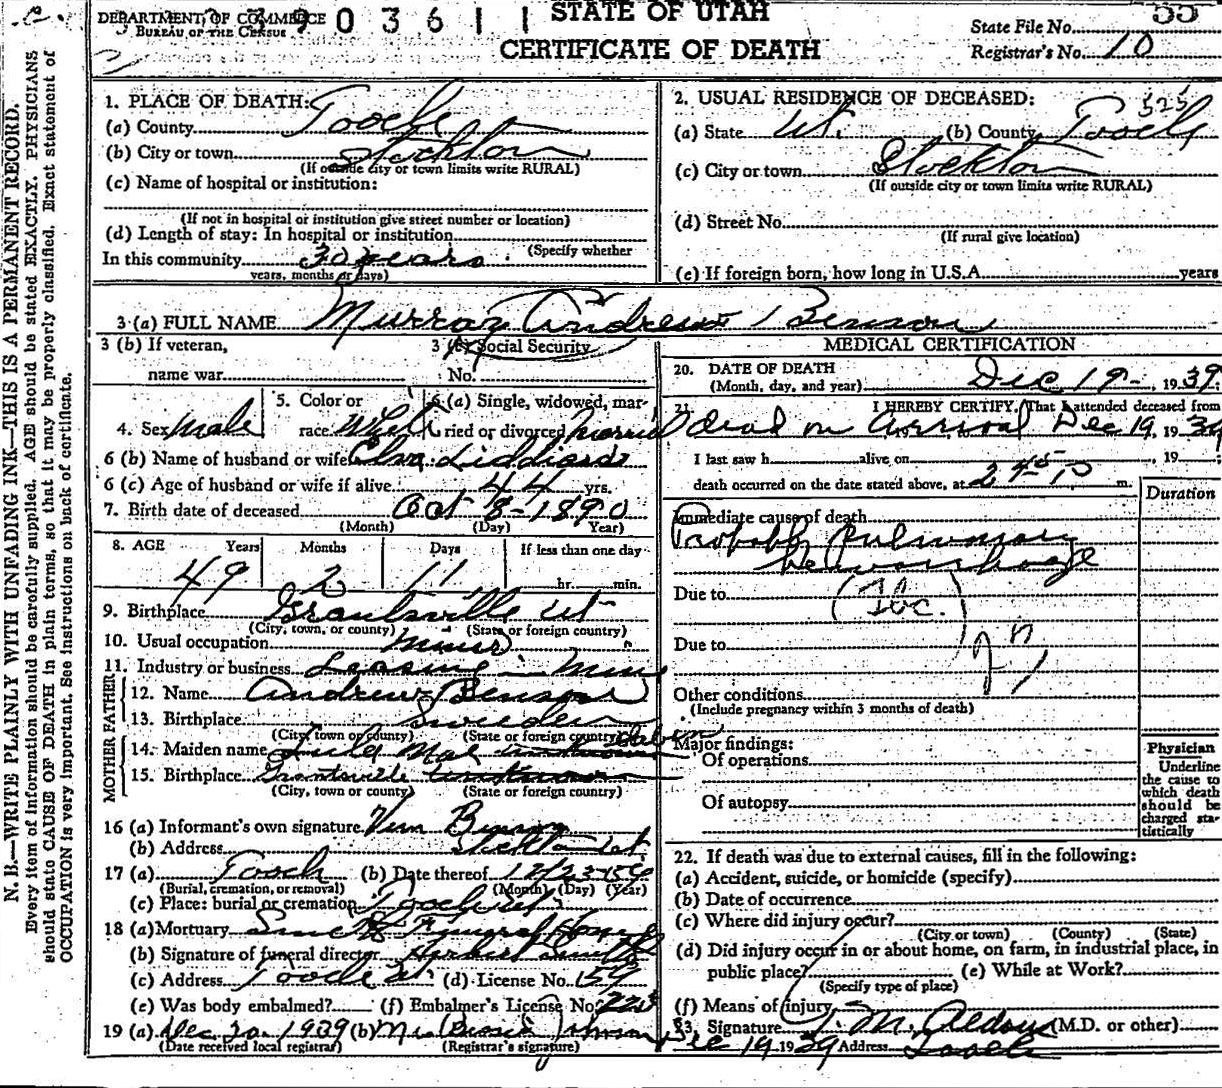 DEPARTMENT OF COMMERCE
BUREAU OF THE CENSUS
3 9 0 3 6 1 1
STATE OF UTAH
CERTIFICATE OF DEATH
State File No. 55
Registrar's No. 10
N. B.—WRITE PLAINLY WITH UNFADING INK—THIS IS A PERMANENT RECORD.
Every item of information should be carefully supplied. AGE should be stated EXACTLY. PHYSICIANS
should state CAUSE OF DEATH in plain terms, so that it may be properly classified. Exact statement of
OCCUPATION is very important. See instructions on back of certificate.
1. PLACE OF DEATH:
(a) County Tooele
(b) City or town Stockton
(If outside city or town limits write RURAL)
(c) Name of hospital or institution:
(If not in hospital or institution give street number or location)
(d) Length of stay: In hospital or institution
(Specify whether
In this community 30 years
years, months or days)
2. USUAL RESIDENCE OF DECEASED: 525
(a) State Ut. (b) County Tooele
(c) City or town Stockton
(If outside city or town limits write RURAL)
(d) Street No.
(If rural give location)
(e) If foreign born, how long in U.S.A. years
3 (a) FULL NAME Murray Andrew Benson
3 (b) If veteran,
name war
3 (c) Social Security
No.
4. Sex Male
5. Color or
race White
6 (a) Single, widowed, mar-
ried or divorced Married
6 (b) Name of husband or wife Elva Liddiard
6 (c) Age of husband or wife if alive 44 yrs.
7. Birth date of deceased Oct 8-1890
(Month) (Day) Year)
8. AGE Years Months Days If less than one day
49 2 11 hr. min.
9. Birthplace Grantsville Ut
(City, town, or county) (State or foreign country)
10. Usual occupation Miner
11. Industry or business Leasing - Mine
FATHER
12. Name Andrew Benson
13. Birthplace Sweden
(City, town or county) (State or foreign country)
MOTHER
14. Maiden name Mae unknown
15. Birthplace Grantsville unknown
(City, town or county) (State or foreign country)
16 (a) Informant's own signature Vern Benson
(b) Address Stockton Ut
17 (a) Tooele (b) Date thereof 12/23-
(Burial, cremation, or removal) (Month) (Day) (Year)
(c) Place: burial or cremation Tooele Ut
18 (a) Mortuary Funeral Home
(b) Signature of funeral director Herbert Smith
(c) Address Tooele Ut. (d) License No. 159
(e) Was body embalmed? (f) Embalmer's License No. 223
19 (a) Dec 20 1939 (b) Mrs Johnson
(Date received local registrar) (Registrar's signature)
MEDICAL CERTIFICATION
20. DATE OF DEATH
(Month, day, and year) Dec 19 -, 1939
21. I HEREBY CERTIFY, That I attended deceased from
dead on arrival Dec 19, 1939
I last saw h alive on , 19 ;
death occurred on the date stated above, at 245 p m.
Duration
Immediate cause of death
Probable Pulmonary
hemorrhage
Due to (Tbc.)
Due to
Other conditions
(Include pregnancy within 3 months of death)
Major findings:
Of operations
Of autopsy
Physician
Underline
the cause to
which death
should be
charged sta-
tistically
22. If death was due to external causes, fill in the following:
(a) Accident, suicide, or homicide (specify)
(b) Date of occurrence
(c) Where did injury occur?
(City or town) (County) (State)
(d) Did injury occur in or about home, on farm, in industrial place, in
public place? (e) While at Work?
(Specify type of place)
(f) Means of injury
23. Signature J. M. Aldous (M.D. or other)
Dec 19 1939 Address Tooele